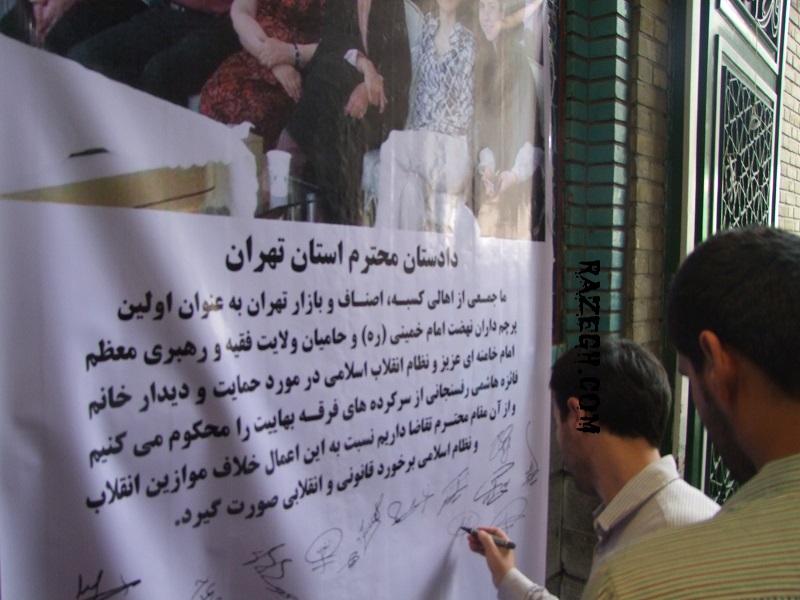 دادستان محترم استان تهران
ما جمعی از اهالی کسبه، اصناف و بازار تهران به عنوان اولین
پرچم داران نهضت امام خمینی (ره) و حامیان ولایت فقیه و رهبری معظم
امام خامنه ای عزیز و نظام انقلاب اسلامی در مورد حمایت و دیدار خانم
فائزه هاشمی رفسنجانی از سرکرده های فرقه بهاییت را محکوم می کنیم
و از آن مقام محترم تقاضا داریم نسبت به این اعمال خلاف موازین انقلاب
و نظام اسلامی برخورد قانونی و انقلابی صورت گیرد.
RAZECH.COM